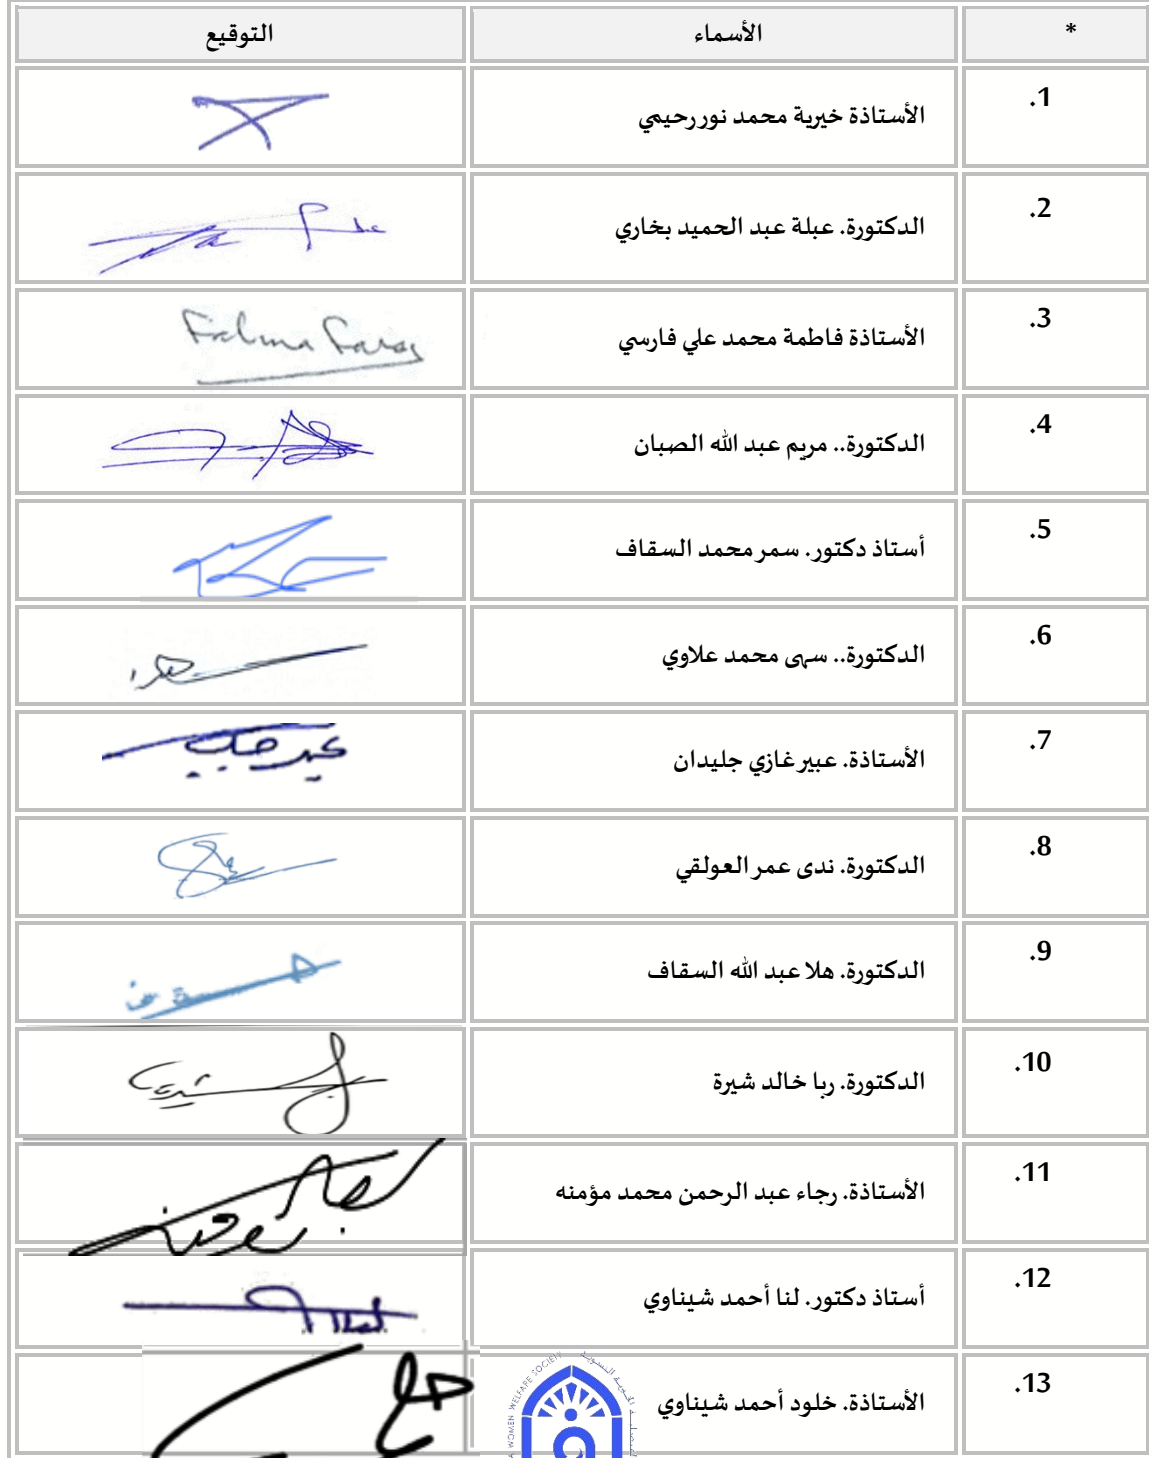 * الأسماء التوقيع
.1 الأستاذة خيرية محمد نور رحيمي
.2 الدكتورة. عبلة عبد الحميد بخاري
.3 الأستاذة فاطمة محمد علي فارسي
.4 الدكتورة.. مريم عبد الله الصبان
.5 أستاذ دكتور. سمر محمد السقاف
.6 الدكتورة.. سهى محمد علاوي
.7 الأستاذة. عبير غازي جليدان
.8 الدكتورة. ندى عمر العولقي
.9 الدكتورة. هلا عبد الله السقاف
.10 الدكتورة. ربا خالد شيرة
.11 الأستاذة. رجاء عبد الرحمن محمد مؤمنه
.12 أستاذ دكتور. لنا أحمد شيناوي
.13 الأستاذة. خلود أحمد شيناوي
WOMEN WELFARE SOCIETY